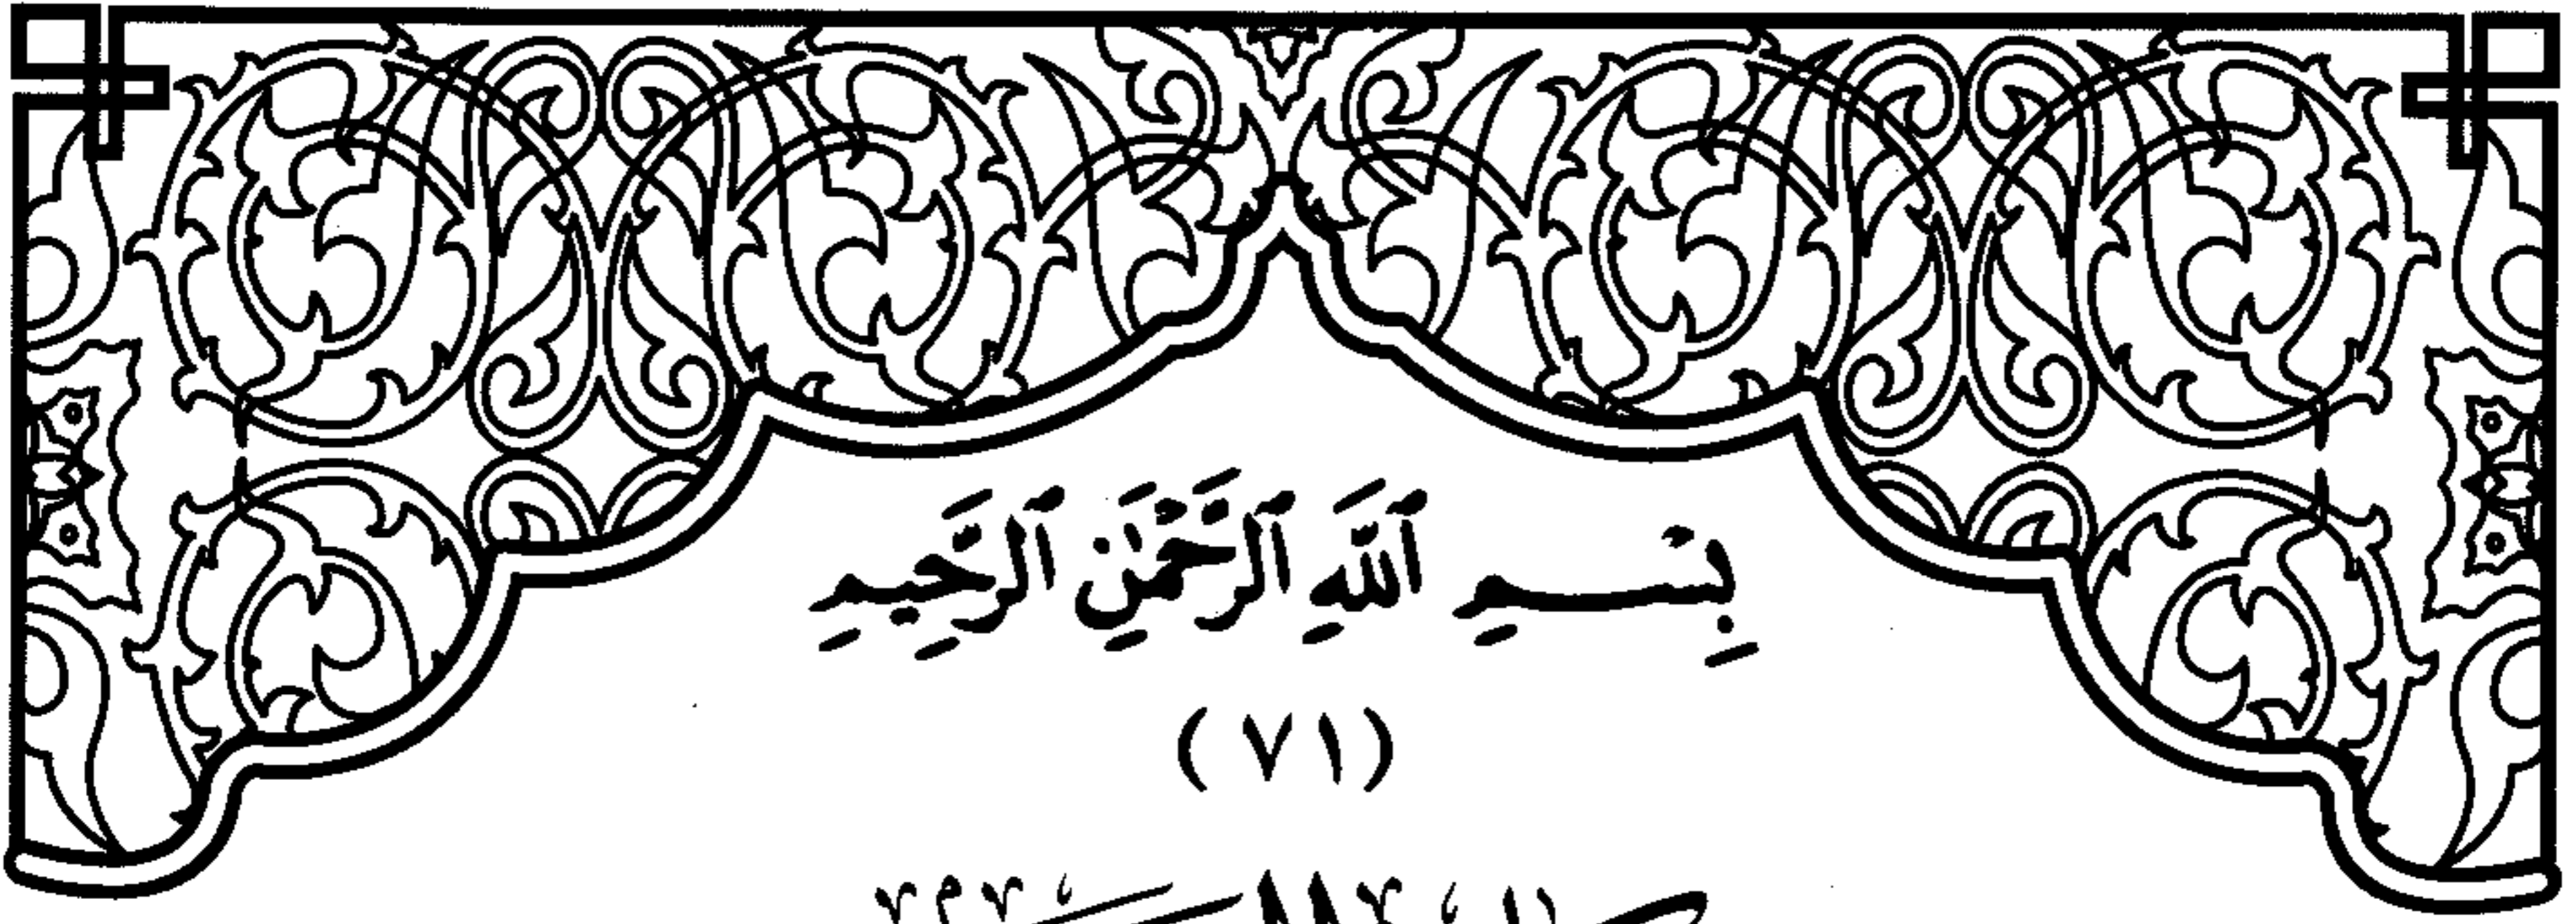 بِسْمِ ٱللَّهِ ٱلرَّحْمَٰنِ ٱلرَّحِيمِ
(٧١)